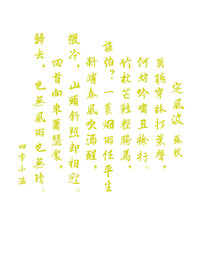 定風波 蘇軾
莫聽穿林打葉聲，
何妨吟嘯且徐行。
竹杖芒鞋輕勝馬，
誰怕？一蓑烟雨任平生
料峭春風吹酒醒，
微冷，山頭斜照却相迎。
回首向來蕭瑟處，
歸去，也無風雨也無晴。
四季小滿